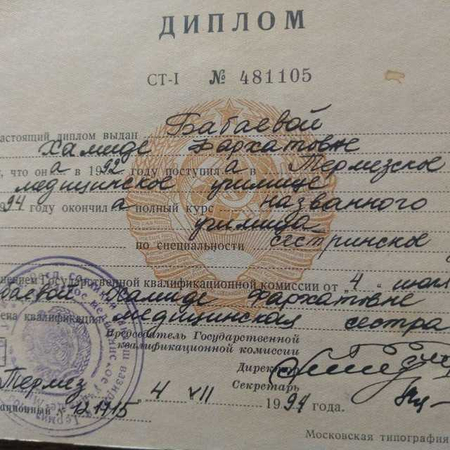 ДИПЛОМ
СТ-I № 481105
астоящий диплом выдан Бабаевой
Хамиде Фархатовне
, что он а в 1992 году поступил а в Термезское
медицинское училище
94 году окончил а полный курс названного
училища
по специальности сестринское
ением Государственной квалификационной комиссии от "4" июл
баевой Хамиде Фархатовне
ена квалификация медицинская сестра
Председатель Государственной
квалификационной комиссии
Директор
Секретарь
Термез 4 VII 1994 года.
ационный № 121915
Московская типография